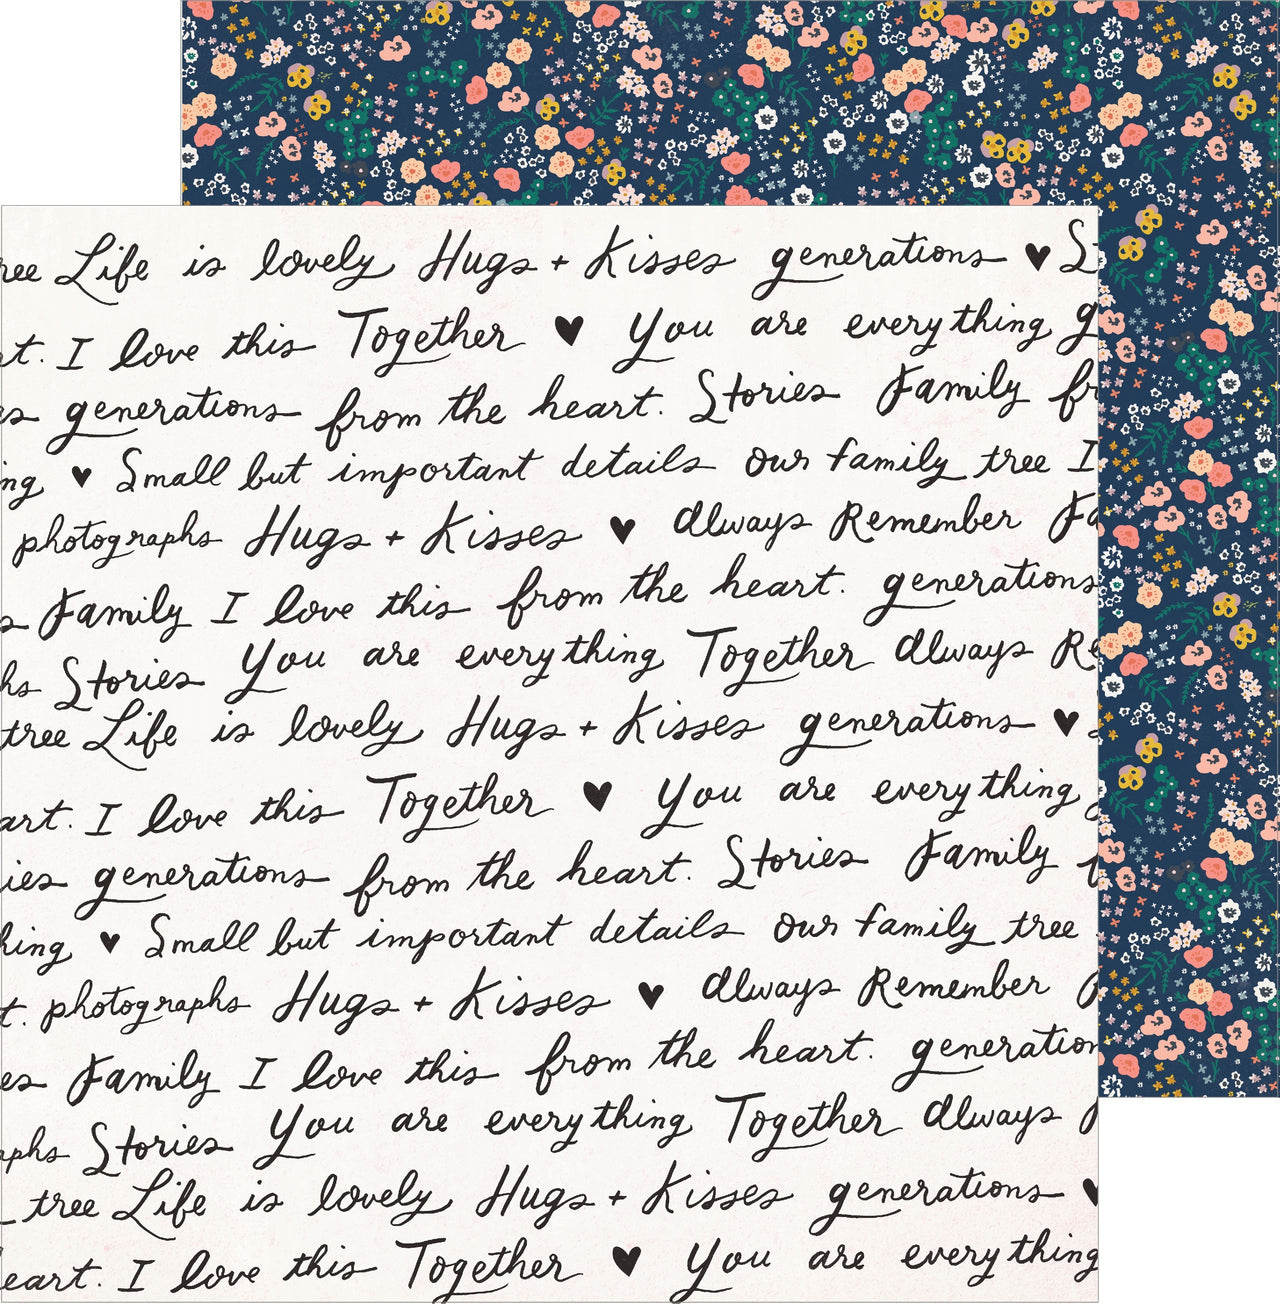 ree Life is lovely Hugs + Kisses generations ♥ St
rt. I love this Together ♥ You are everything g
es generations from the heart. Stories Family fr
ing ♥ Small but important details our family tree I
photographs Hugs + Kisses ♥ always Remember Fa
s Family I love this from the heart. generations
hs Stories You are everything Together always Re
tree Life is lovely Hugs + Kisses generations ♥ S
art. I love this Together ♥ You are everything
ies generations from the heart. Stories Family f
hing ♥ Small but important details our family tree
t. photographs Hugs + Kisses ♥ always Remember
es Family I love this from the heart. generation
aphs Stories You are everything Together always
tree Life is lovely Hugs + Kisses generations ♥
eart. I love this Together ♥ You are everything